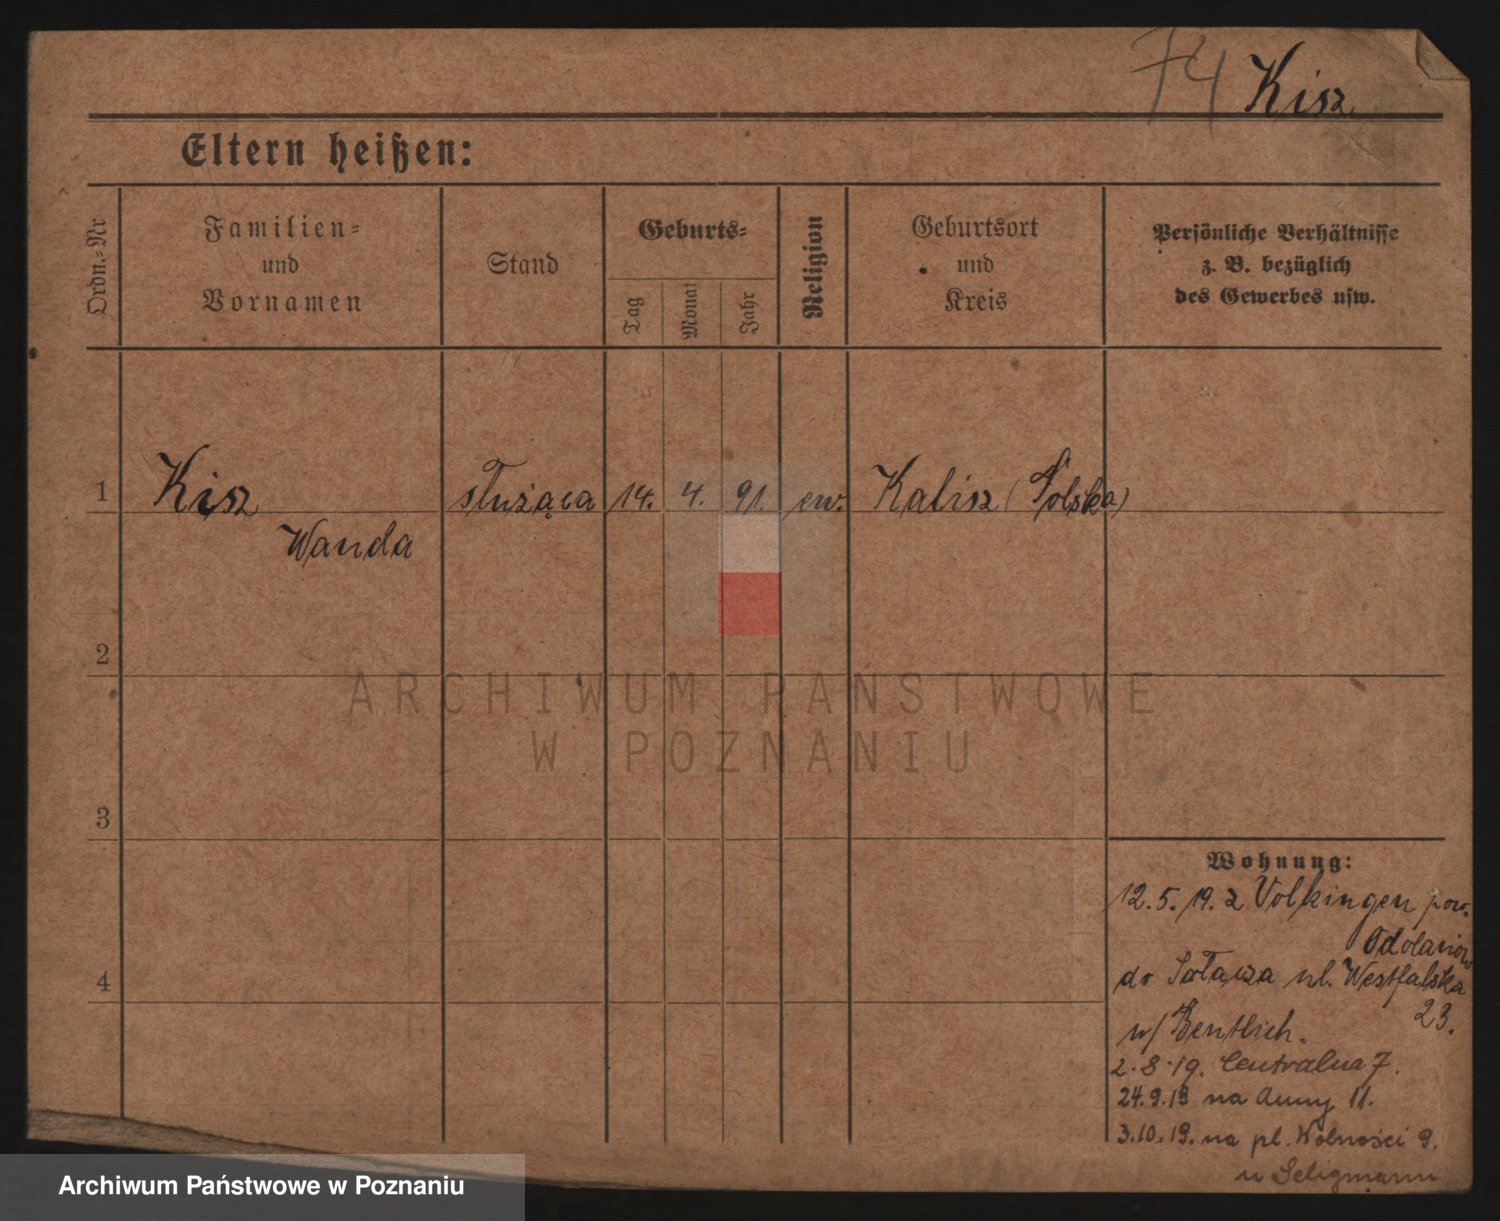 74 Kisz
Eltern heißen:
Ordn.-Nr
Familien-
und
Vornamen
Stand
Geburts-
Tag
Monat
Jahr
Religion
Geburtsort
und
Kreis
Persönliche Verhältnisse
z. B. bezüglich
des Gewerbes usw.
1 Kisz służąca 14. 4. 91. ew. Kalisz (Polska)
Wanda
2
ARCHIWUM PAŃSTWOWE
W POZNANIU
3
Wohnung:
12.5.19. z Volkingen pow.
Odolanów
4
do Sołacza ul. Westfalska
23.
w/ Bentlich.
2.8.19. Centralna 7.
24.9.19 na Anny 11.
3.10.19. na pl. Wolności 9.
u Seligmann
Archiwum Państwowe w Poznaniu